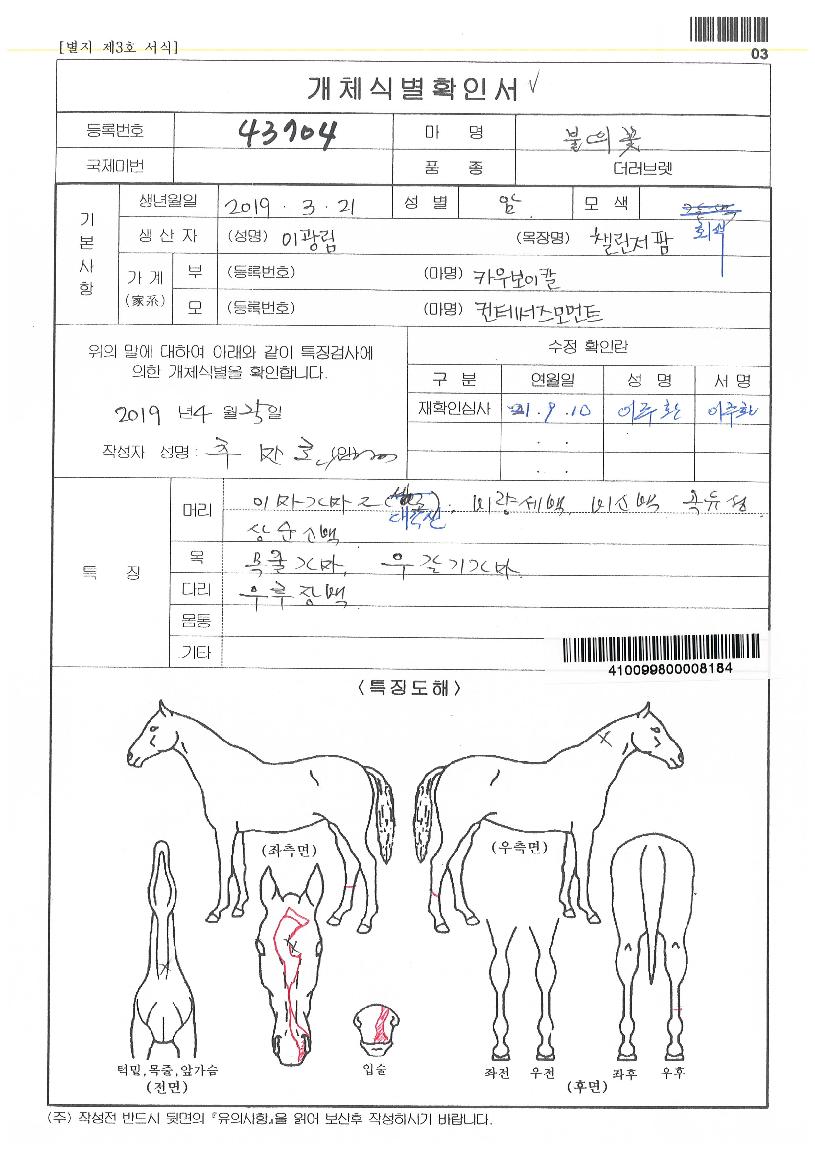 [별지 제3호 서식]
03
개체식별확인서 √
등록번호 43704 마 명 불의꽃
국제마번 품 종 더러브렛
기본사항
생년월일 2019 . 3 . 21 성 별 암 모 색 회색
생 산 자 (성명) 이광림 (목장명) 챌린저팜
가 계 (家系)
부 (등록번호) (마명) 카우보이칼
모 (등록번호) (마명) 컨테서즈모먼트
위의 말에 대하여 아래와 같이 특징검사에
의한 개체식별을 확인합니다.
2019 년 4 월 25 일
작성자 성명 :
수정 확인란
구 분 연월일 성 명 서 명
재확인심사 21 . 9 . 10 이주환 이주환
. .
. .
특 징
머리 이마가마 비량세백, 비소백
상순소백
목 목줄가마, 우갈기가마
다리 우후장백
몸통
기타
410099800008184
<특징도해>
(좌측면) (우측면)
턱밑,목줄,앞가슴
(전면)
입술
좌전 우전
(후면)
좌후 우후
(주) 작성전 반드시 뒷면의 『유의사항』을 읽어 보신후 작성하시기 바랍니다.